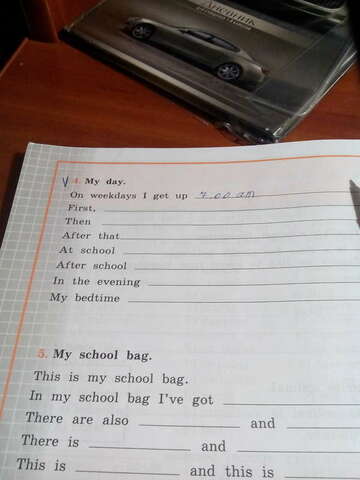 Дневник
4. My day.
On weekdays I get up 7.00 am
First,
Then
After that
At school
After school
In the evening
My bedtime
5. My school bag.
This is my school bag.
In my school bag I've got
There are also and
There is and
This is and this is